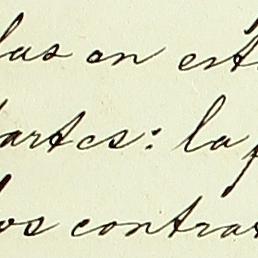 las en est
artes: la p
los contrat